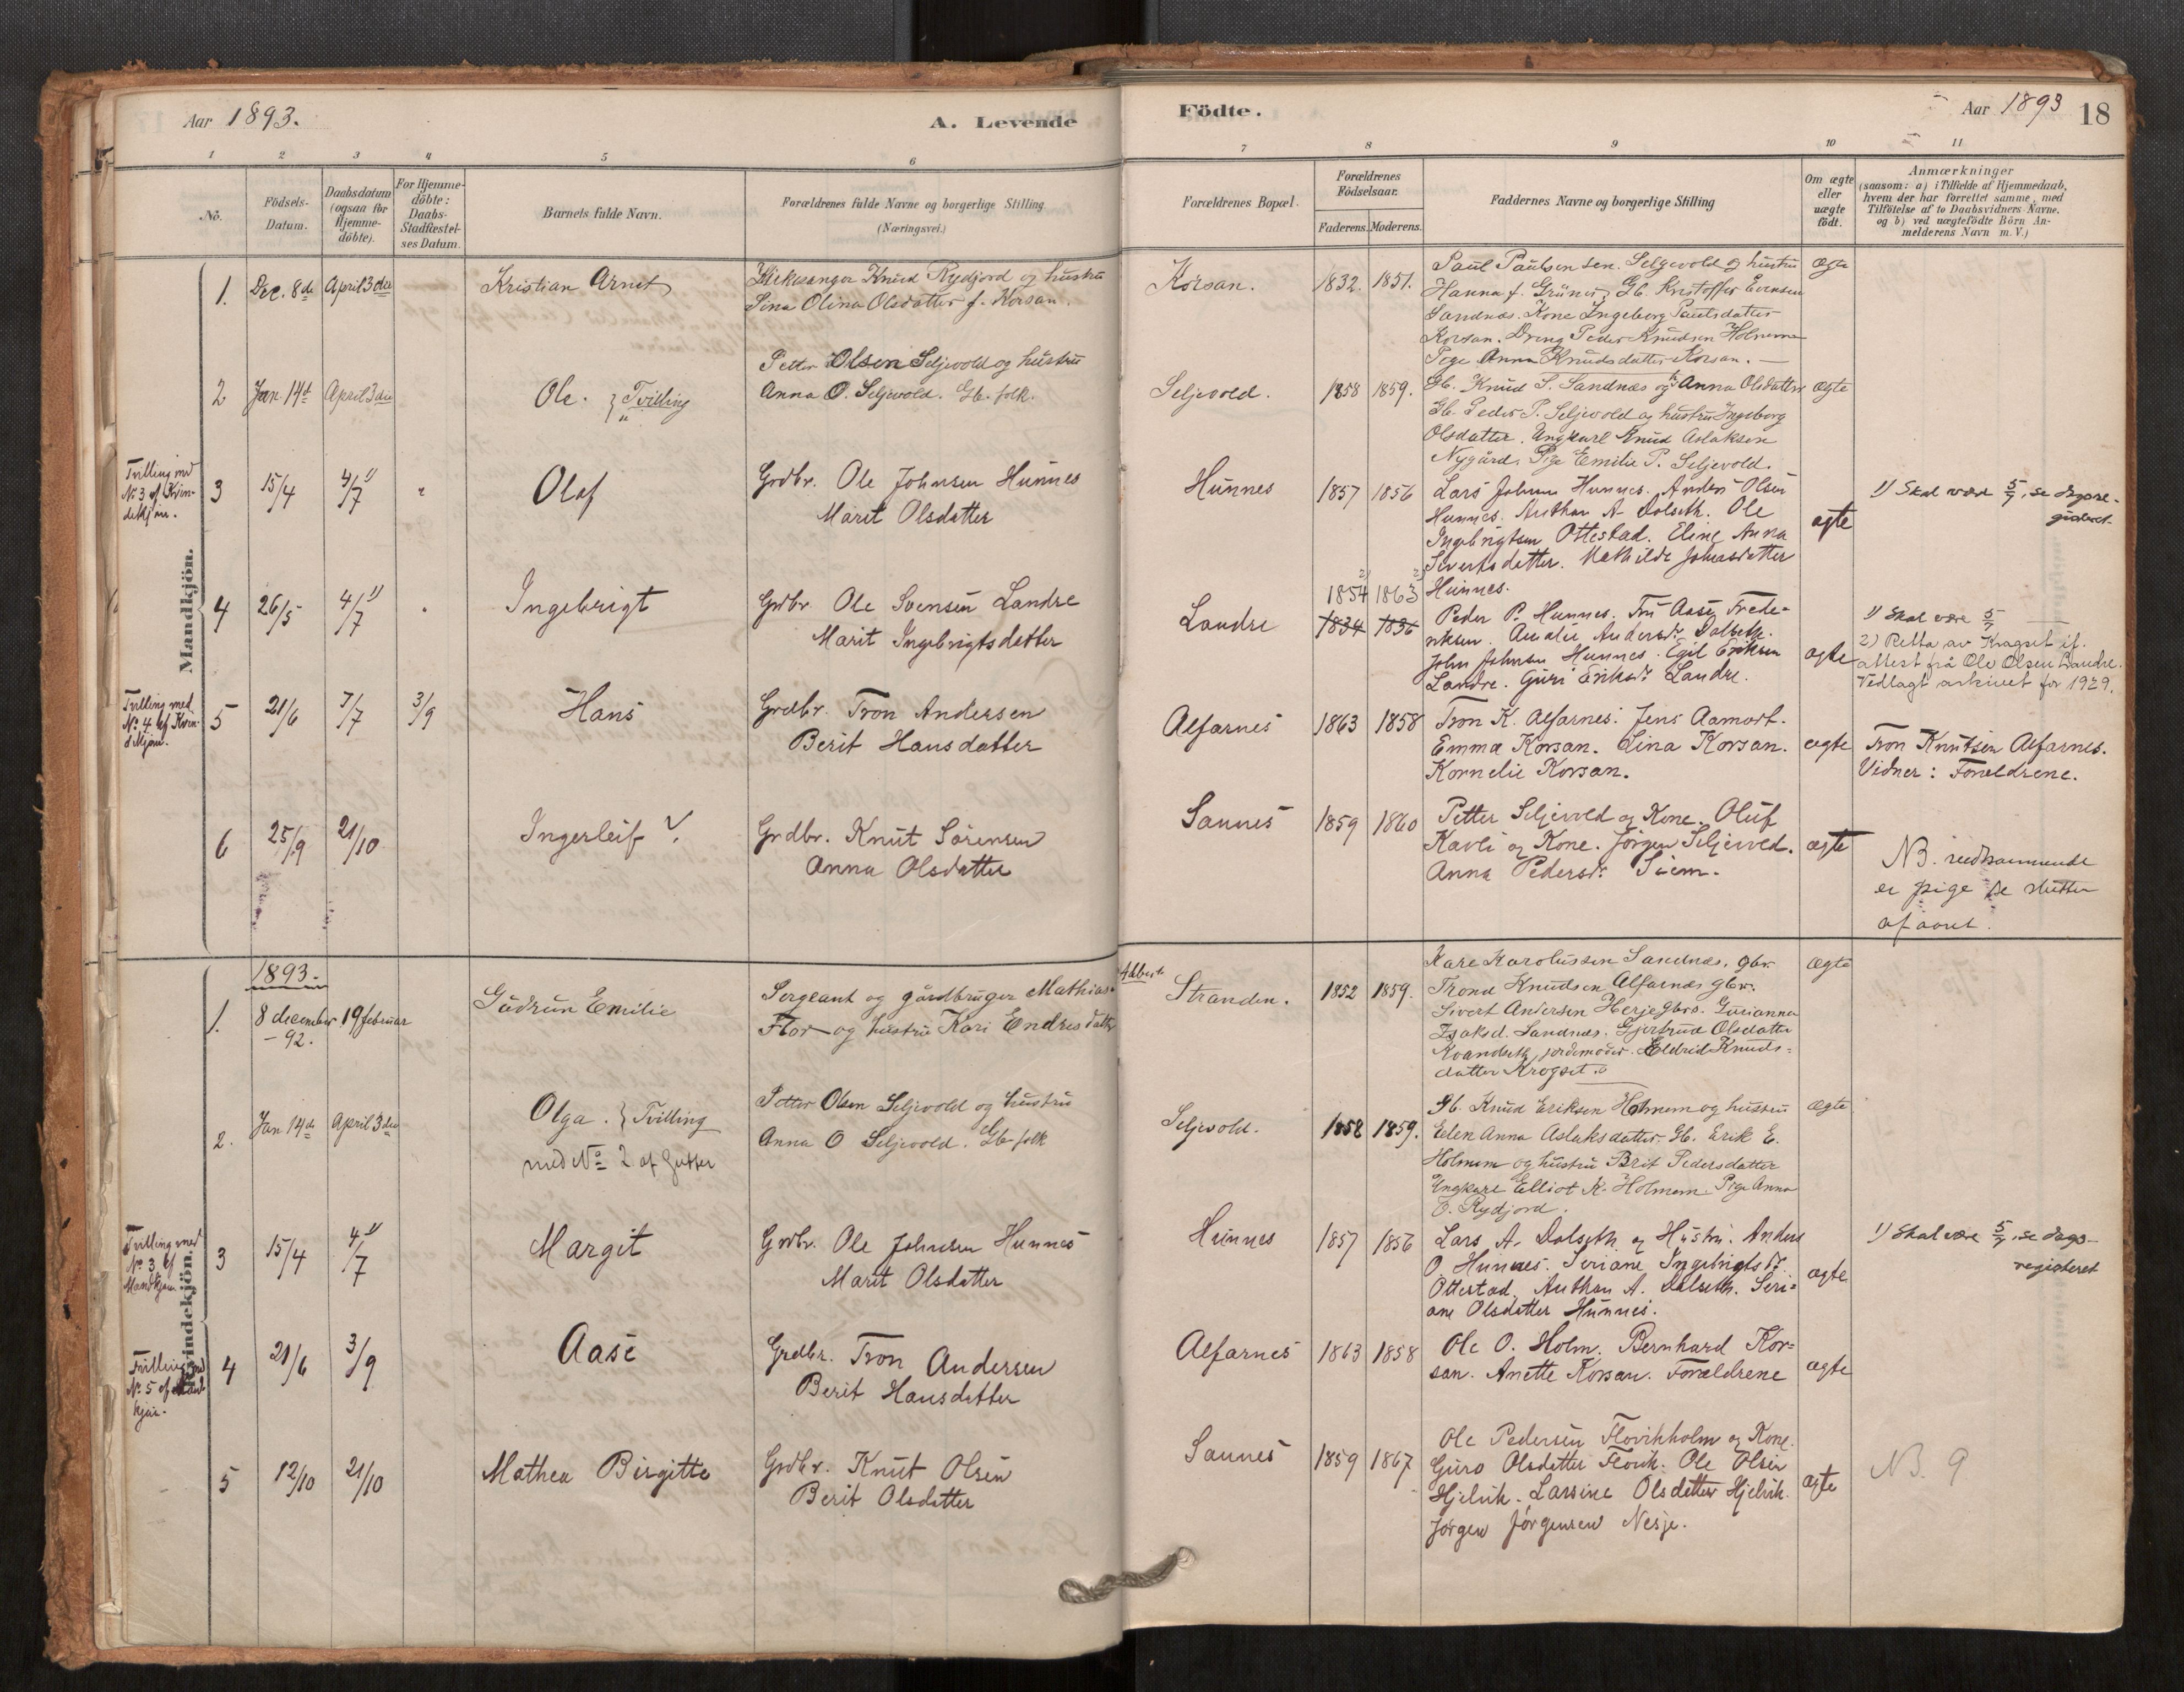 Aar 1893.
A. Levende
1 2 3 4 5 6
No.
Födsels-
Datum.
Daabsdatum
(ogsaa for
Hjemme-
döbte).
For Hjemme-
döbte:
Daabs-
Stadfæstel-
ses Datum.
Barnets fulde Navn.
Forældrenes fulde Navne og borgerlige Stilling
(Næringsvei.)
Mandkjön.
1. Dec. 8de April 3die Kristian Arnet
Kirkesanger Knud Rydjord og hustru
Sina Olina Olsdatter f. Korsan.
2 Jan 14de April 3die Ole. } Tvilling
Petter Olsen Seljevold og hustru
Anna O. Seljevold. Gb. folk.
Tvilling med
No 3 af Kvin-
dekjøn.
3 15/4 4/7 1) " Olaf
Grdbr. Ole Johnsen Hunnes
Marit Olsdatter
4 26/5 4/7 1) " Ingebrigt
Grdbr. Ole Svensen Landre
Marit Ingebrigtsdatter
Tvilling med
No 4 af Kvin-
dekjøn.
5 21/6 7/7 3/9 Hans
Grdbr. Tron Andersen
Berit Hansdatter
6 25/9 21/10 Ingerleif V.
Grdbr. Knut Sörensen
Anna Olsdatter
Kvindekjön.
1893.
1. 8 december 19 februar Gudrun Emilie
- 92.
Sergeant og gårdbruger Mathias
Flor og hustru Kari Endresdatter
2. Jan 14de April 3die Olga. } Tvilling
med No 2 af Gutter
Petter Olsen Seljevold og hustru
Anna O Seljevold. Gb folk
Tvilling med
No 3 af
Mandkjøn
3 15/4 4/7 1) Margit
Grdbr. Ole Johnsen Hunnes
Marit Olsdatter
Tvilling med
No 5 af Mand-
kjøn.
4 21/6 3/9 Aase
Grdbr. Tron Andersen
Berit Hansdatter
5 12/10 21/10 Mathea Birgitte
Grdbr. Knut Olsen
Berit Olsdatter
Födte.
Aar 1893 18
7 8 9 10 11
Forældrenes Bopæl.
Forældrenes
Födselsaar.
Faderens. Moderens.
Faddernes Navne og borgerlige Stilling
Om ægte
eller
uægte
födt.
Anmærkninger
(saasom: a) i Tilfælde af Hjemmedaab,
hvem der har forrettet samme, med
Tilföielse af to Daabsvidners Navne,
og b) ved uægtefödte Börn An-
melderens Navn m.V.)
Korsan. 1832. 1851.
Paul Paulsen sen. Selgevold og hustru Ægte
Hanna f. Grüner, Gb. Kristoffer Evensen
Sandnæs. Kone Ingeborg Paulsdatter
Korsan. Dreng Peder Knudsen Holmem
Pige Anna Knudsdatter Korsan. —
Seljevold. 1858 1859.
Gb. Knud S. Sandnæs og h. Anna Olsdatter Ægte
Gb. Peder P. Seljevold og hustru Ingeborg
Olsdatter. Ungkarl Knud Aslaksen
Nygård. Pige Emilie P. Seljevold.
Hunnes 1857 1856
Lars Johnsen Hunnes. Anders Olsen
Hunnes. Anthon A. Dalseth. Ole
Ingebrigtsen Ottestad. Eline Anna
Sivertsdatter. Mathilde Johnsdatter
Hunnes.
ægte
1) Skal være 5/7, se dagsre-
gisteret.
Landre 1854 2) 1863 2)
1834 1836
Peder P. Hunnes. Fru Aase Frede-
riksen. Amalie Andersdr Dalseth.
John Johnsen Hunnes. Egil Eriksen
Landre. Guri Eriksdr Landre.
ægte
1) Skal være 5/7
2) Retta av Kragset if.
attest frå Ole Olsen Landre.
Vedlagt arkivet for 1929.
Alfarnes 1863 1858
Tron K. Alfarnes. Jens Aamort.
Emma Korsan. Lina Korsan.
Kornelie Korsan.
ægte
Tron Knutsen Alfarnes.
Vidner: Forældrene.
Sannes 1859 1860
Petter Seljevold og Kone. Oluf
Kavli og Kone. Jörgen Seljevold.
Anna Pedersdr Siem.
ægte
NB. vedkommende
er pige se slutten
af aaret.
Stranden. 1852 1859.
Kare Karolussen Sandnæs, gbr. Ægte
Trond Knudsen Alfarnæs gbr.
Sivert Andersen Herje gbr. Gurianna
Isaksd. Sandnæs. Gjertrud Olsdatter
Kvandseth, jordemoder. Eldrid Knuds-
datter Krogset.
Seljevold. 1858 1859.
Gb. Knud Eriksen Holmem og hustru Ægte
Elen Anna Aslaksdatter. Gb. Erik E.
Holmem og hustru Brit Pedersdatter
Ungkarl Elliot K. Holmem. Pige Anna
E. Rydjord.
Hunnes 1857 1856
Lars A. Dalseth og Hustru. Anders
O. Hunnes. Seriane Ingebrigtsdr
Ottestad. Anthon A. Dalseth. Seri-
ane Olsdatter Hunnes.
ægte
1) Skal være 5/7, se dags-
registeret
Alfarnes 1863 1858
Ole O. Holm. Bernhard Kor-
san. Anette Korsan. Forældrene
ægte
Sannes 1859 1867
Ole Pedersen Flovikholm og Kone.
Guro Olsdatter Flovik. Ole Olsen
Hjelvik. Larsine Olsdatter Hjelvik.
Jörgen Jörgensen Nesje.
ægte
NB. 9